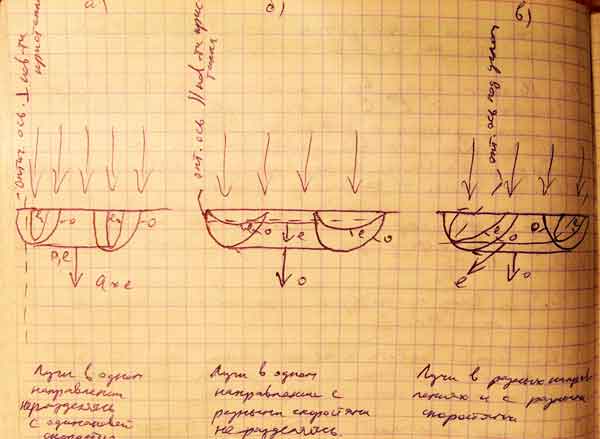 а) б) в)
оптич. ось ⊥ пов-ти кристалла
опт. ось || пов-ти крис
талла
опт. ось под углом
e o e o
e o e o
e o o e
o,e
e
e
o
o
Лучи в одном
направлении
не разделяясь
с одинаковой
скоростью
Лучи в одном
направлении с
разными скоростями
не разделяясь.
Лучи в разных направ
лениях и с разными
скоростями